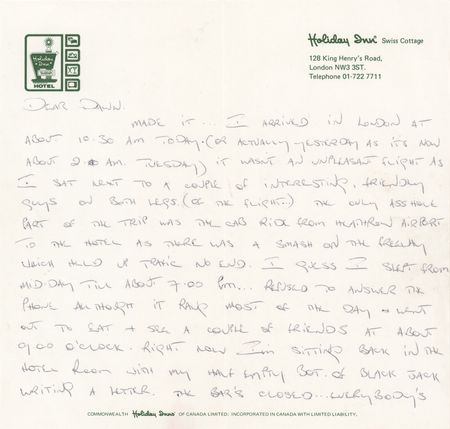 Holiday Inn
HOTEL
Holiday Inn® Swiss Cottage
128 King Henry's Road,
London NW3 3ST.
Telephone 01-722 7711
DEAR DAWN.
MADE IT... I ARRIVED IN LONDON AT
ABOUT 10.30 AM TODAY. (OR ACTUALLY YESTERDAY AS ITS NOW
ABOUT 2 AM. TUESDAY) IT WASNT AN UNPLEASANT FLIGHT AS
I SAT NEXT TO A COUPLE OF INTERESTING, FRIENDLY
GUYS ON BOTH LEGS. (OF THE FLIGHT.) THE ONLY ASSHOLE
PART OF THE TRIP WAS THE CAB RIDE FROM HEATHROW AIRPORT
TO THE HOTEL AS THERE WAS A SMASH ON THE FREEWAY
WHICH HELD UP TRAFIC NO END. I GUESS I SLEPT FROM
MID-DAY TILL ABOUT 7.00 PM... REFUSED TO ANSWER THE
PHONE ALTHOUGH IT RANG MOST OF THE DAY & WENT
OUT TO EAT & SEE A COUPLE OF FRIENDS AT ABOUT
9.00 O'CLOCK. RIGHT NOW I'm SITTING BACK IN THE
HOTEL ROOM WITH MY HALF EMPTY BOT. OF BLACK JACK
WRITING A LETTER. THE BAR'S CLOSED... EVERYBODY'S
COMMONWEALTH Holiday Inns® OF CANADA LIMITED. INCORPORATED IN CANADA WITH LIMITED LIABILITY.